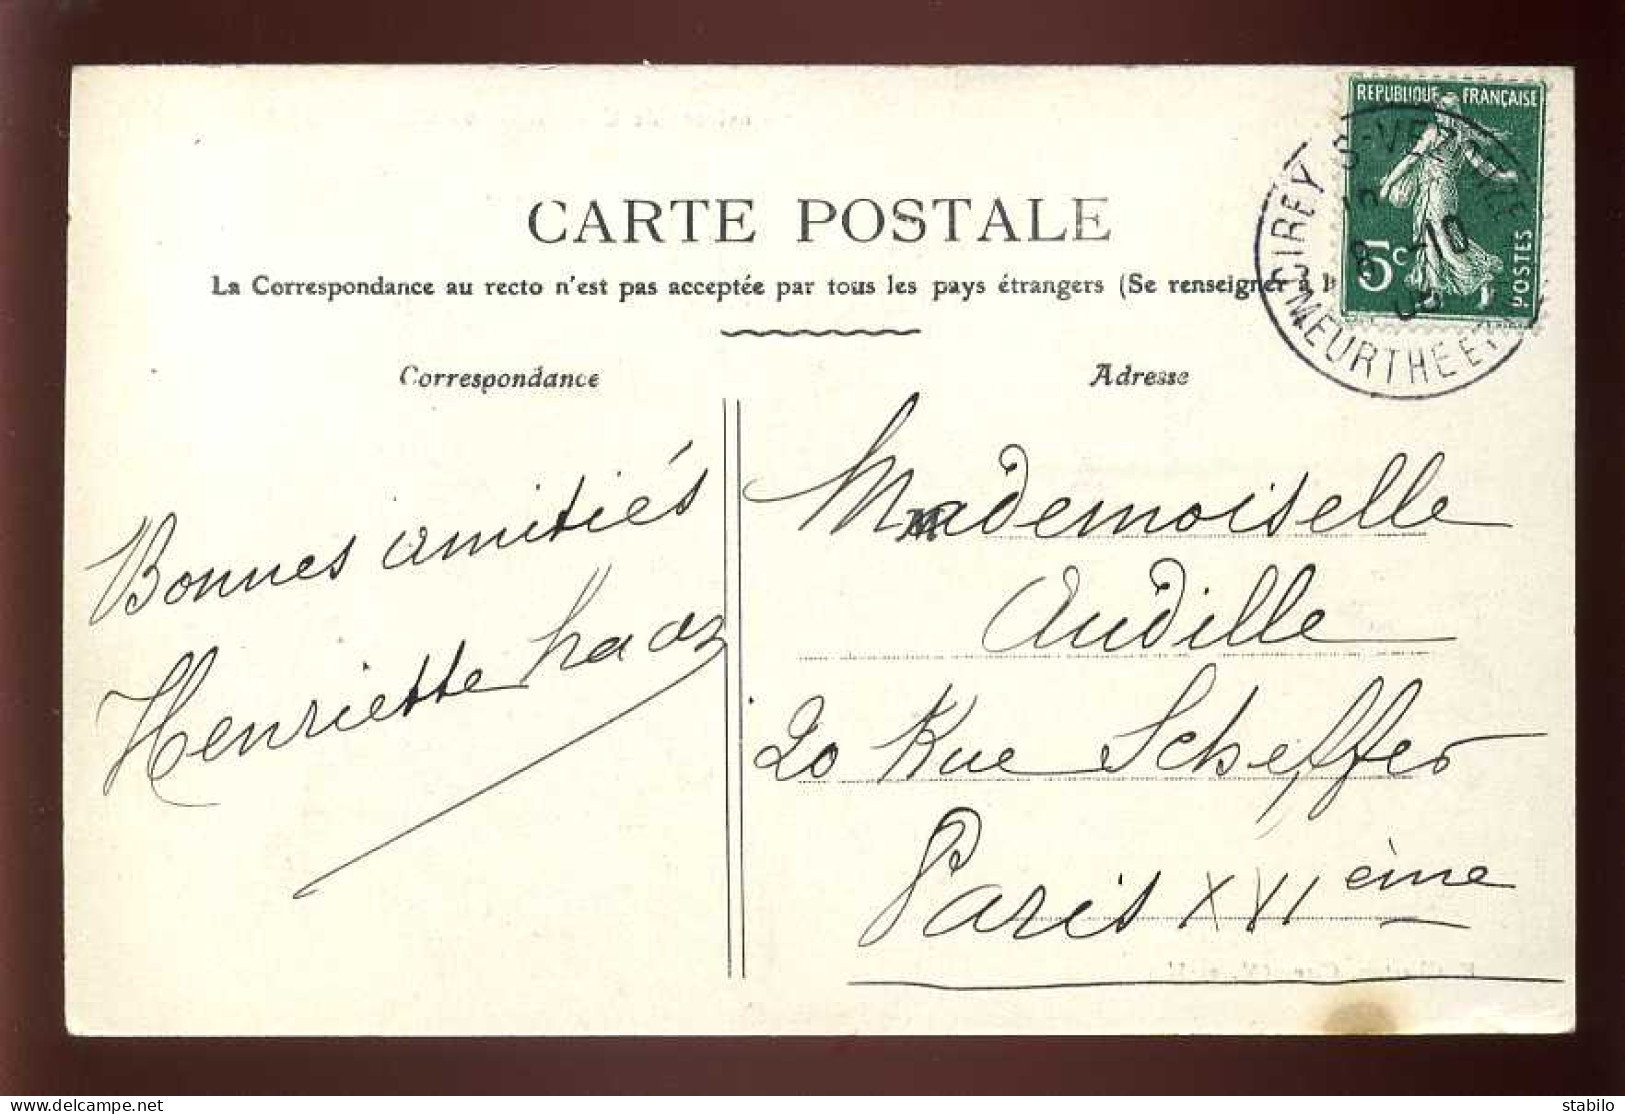 REPUBLIQUE FRANÇAISE
5c
POSTES
CIREY S-VEZOUZE
MEURTHE ET
CARTE POSTALE
La Correspondance au recto n'est pas acceptée par tous les pays étrangers (Se renseigner à
Correspondance
Adresse
Bonnes amitiés
Henriette
Mademoiselle
Audille
20 Rue Scheffer
Paris XVIème
delcampe.net
stabilo